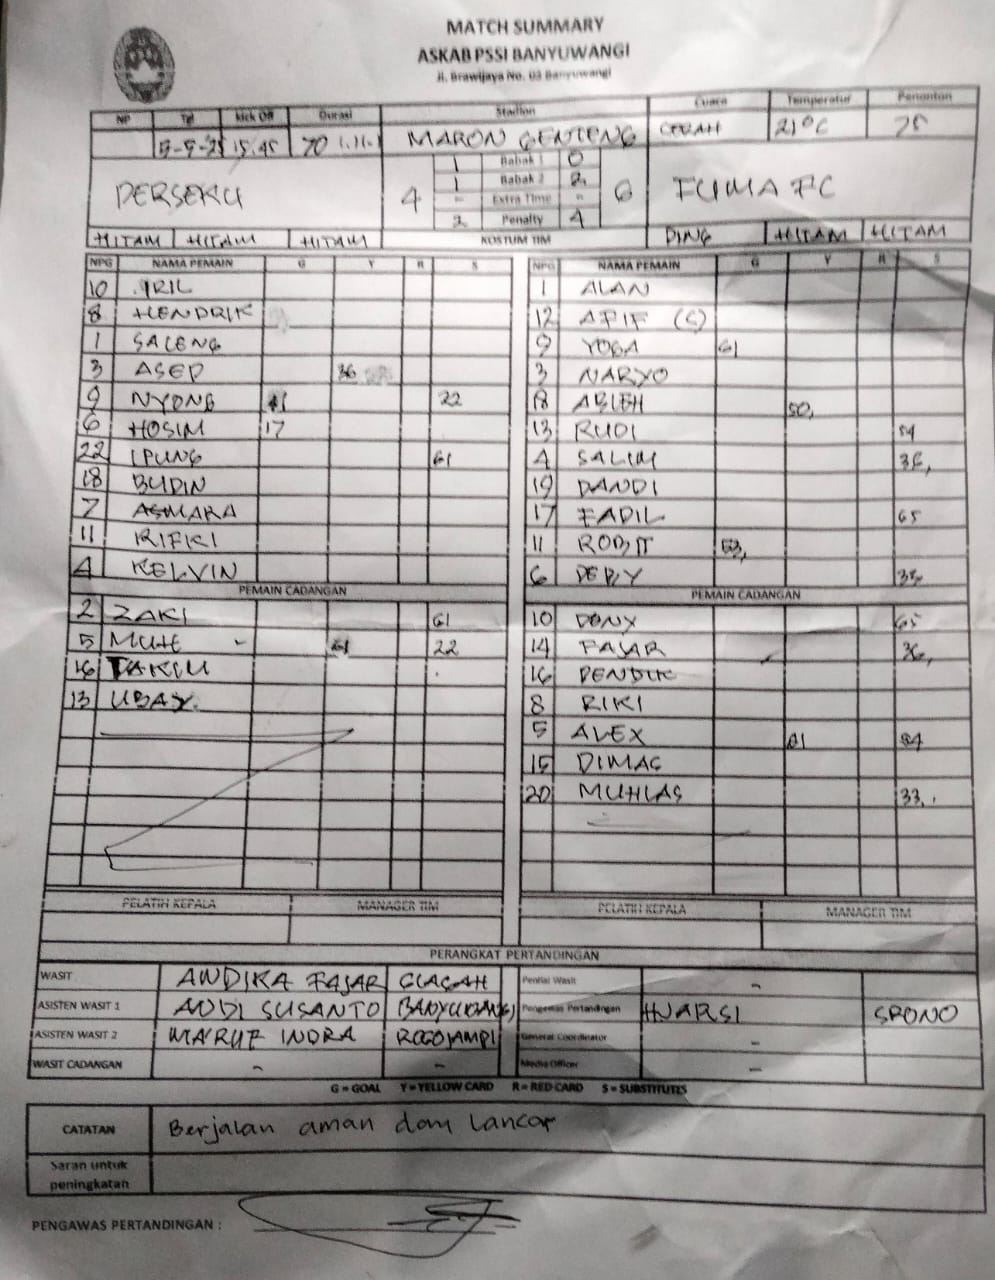 MATCH SUMMARY
ASKAB PSSI BANYUWANGI
Jl. Brawijaya No. 03 Banyuwangi
NP Tgl Kick Off Durasi Stadion Cuaca Temperatur Penonton
15.45 70 MARON GENTENG CERAH 21°C 75
PERSEKU 4 1 Babak 1 0 6 FUMA FC
1 Babak 2 2
- Extra Time -
2 Penalty 4
HITAM HITAM HITAM KOSTUM TIM PING HITAM HITAM
NPG NAMA PEMAIN G Y R S NPG NAMA PEMAIN G Y R S
10 1 ALAN
8 HENDRIK 12 APIF (C)
1 SALENG 9 YOGA 61
3 ASEP 36 3 NARYO
9 NYONG 22 18 ABLEH 50,
6 HOSIM 17 13 RUDI
22 IPUNG 61 4 SALIM
18 BUDIN 19 DANDI
7 ASMARA 17 FADIL 65
11 RIFKI 11
4 KELVIN 6
PEMAIN CADANGAN PEMAIN CADANGAN
2 ZAKI 61 10 DONY 65
5 22 14 FAJAR 36,
16 16 PENDIK
13 UBAY. 8 RIKI
5 ALEX
15 DIMAS
20 MUHLAS 33,
PELATIH KEPALA MANAGER TIM PELATIH KEPALA MANAGER TIM
PERANGKAT PERTANDINGAN
WASIT ANDIKA FAJAR GLAGAH Penilai Wasit -
ASISTEN WASIT 1 ANDI SUSANTO Pengawas Pertandingan SRONO
ASISTEN WASIT 2 MARUF INDRA ROGOJAMPI General Coordinator -
WASIT CADANGAN - - Media Officer -
G = GOAL Y = YELLOW CARD R = RED CARD S = SUBSTITUTES
CATATAN Berjalan aman dan lancar
Saran untuk
peningkatan
PENGAWAS PERTANDINGAN :